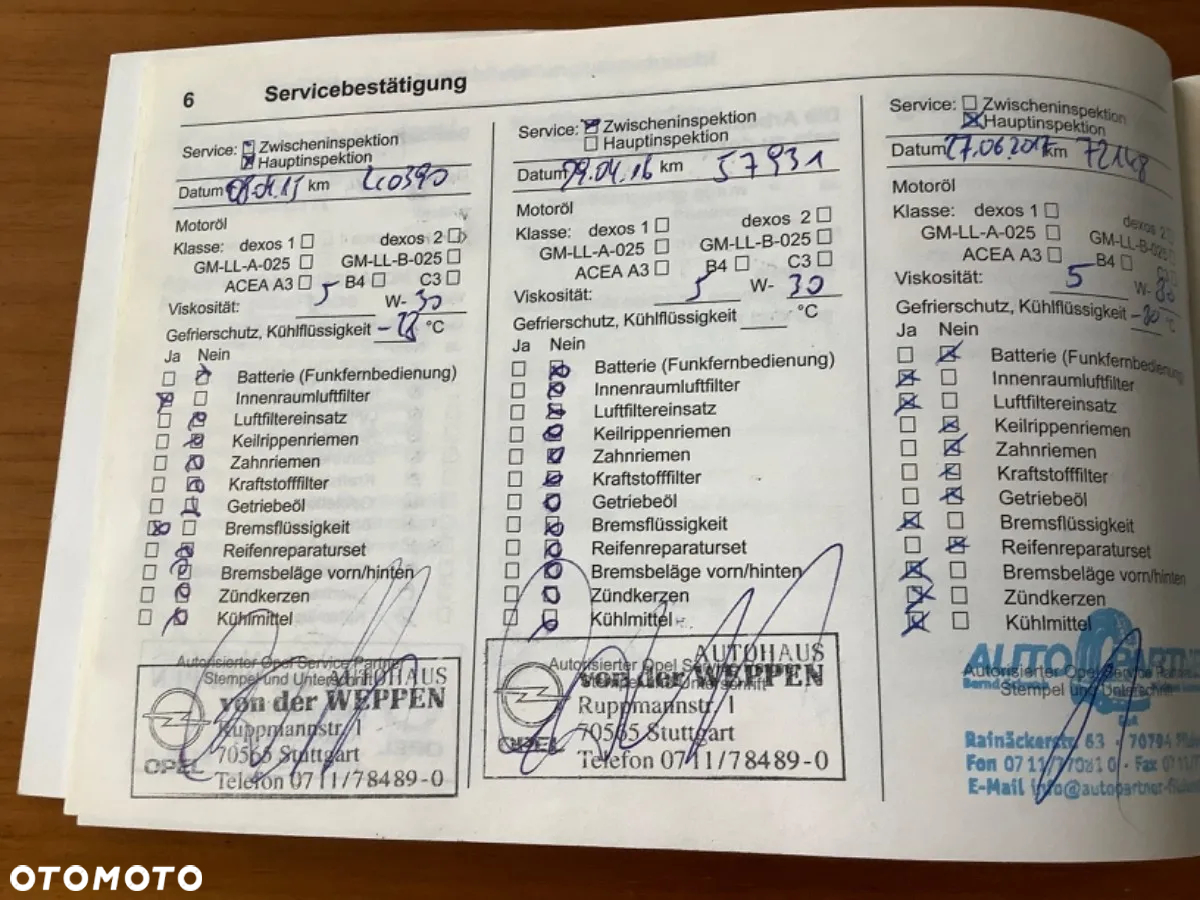 6 Servicebestätigung
Service: Zwischeninspektion
Hauptinspektion
Datum km 40390
Motoröl
Klasse: dexos 1 dexos 2
GM-LL-A-025 GM-LL-B-025
ACEA A3 B4 C3
Viskosität: 5 W- 30
Gefrierschutz, Kühlflüssigkeit -28 °C
Ja Nein
Batterie (Funkfernbedienung)
Innenraumluftfilter
Luftfiltereinsatz
Keilrippenriemen
Zahnriemen
Kraftstofffilter
Getriebeöl
Bremsflüssigkeit
Reifenreparaturset
Bremsbeläge vorn/hinten
Zündkerzen
Kühlmittel
Autorisierter Opel Service Partner
Stempel und Unterschrift
AUTOHAUS
von der WEPPEN
Ruppmannstr. 1
70565 Stuttgart
OPEL
Telefon 0711/78489-0
Service: Zwischeninspektion
Hauptinspektion
Datum 29.04.16 km 57931
Motoröl
Klasse: dexos 1 dexos 2
GM-LL-A-025 GM-LL-B-025
ACEA A3 B4 C3
Viskosität: 5 W- 30
Gefrierschutz, Kühlflüssigkeit °C
Ja Nein
Batterie (Funkfernbedienung)
Innenraumluftfilter
Luftfiltereinsatz
Keilrippenriemen
Zahnriemen
Kraftstofffilter
Getriebeöl
Bremsflüssigkeit
Reifenreparaturset
Bremsbeläge vorn/hinten
Zündkerzen
Kühlmittel
Autorisierter Opel Service
Stempel und Unterschrift
AUTOHAUS
von der WEPPEN
Ruppmannstr. 1
70565 Stuttgart
OPEL
Telefon 0711/78489-0
Service: Zwischeninspektion
Hauptinspektion
Datum 27.06.2017 km 72148
Motoröl
Klasse: dexos 1 dexos 2
GM-LL-A-025 GM-LL-B-025
ACEA A3 B4 C3
Viskosität: 5 W- 30
Gefrierschutz, Kühlflüssigkeit -30 °C
Ja Nein
Batterie (Funkfernbedienung)
Innenraumluftfilter
Luftfiltereinsatz
Keilrippenriemen
Zahnriemen
Kraftstofffilter
Getriebeöl
Bremsflüssigkeit
Reifenreparaturset
Bremsbeläge vorn/hinten
Zündkerzen
Kühlmittel
AUTO PARTN
Autorisierter Opel Service
Stempel und Unterschrift
Rainäckerstr. 63 · 70794
Fon 0711/ · Fax
E-Mail info@autopartner-
OTOMOTO